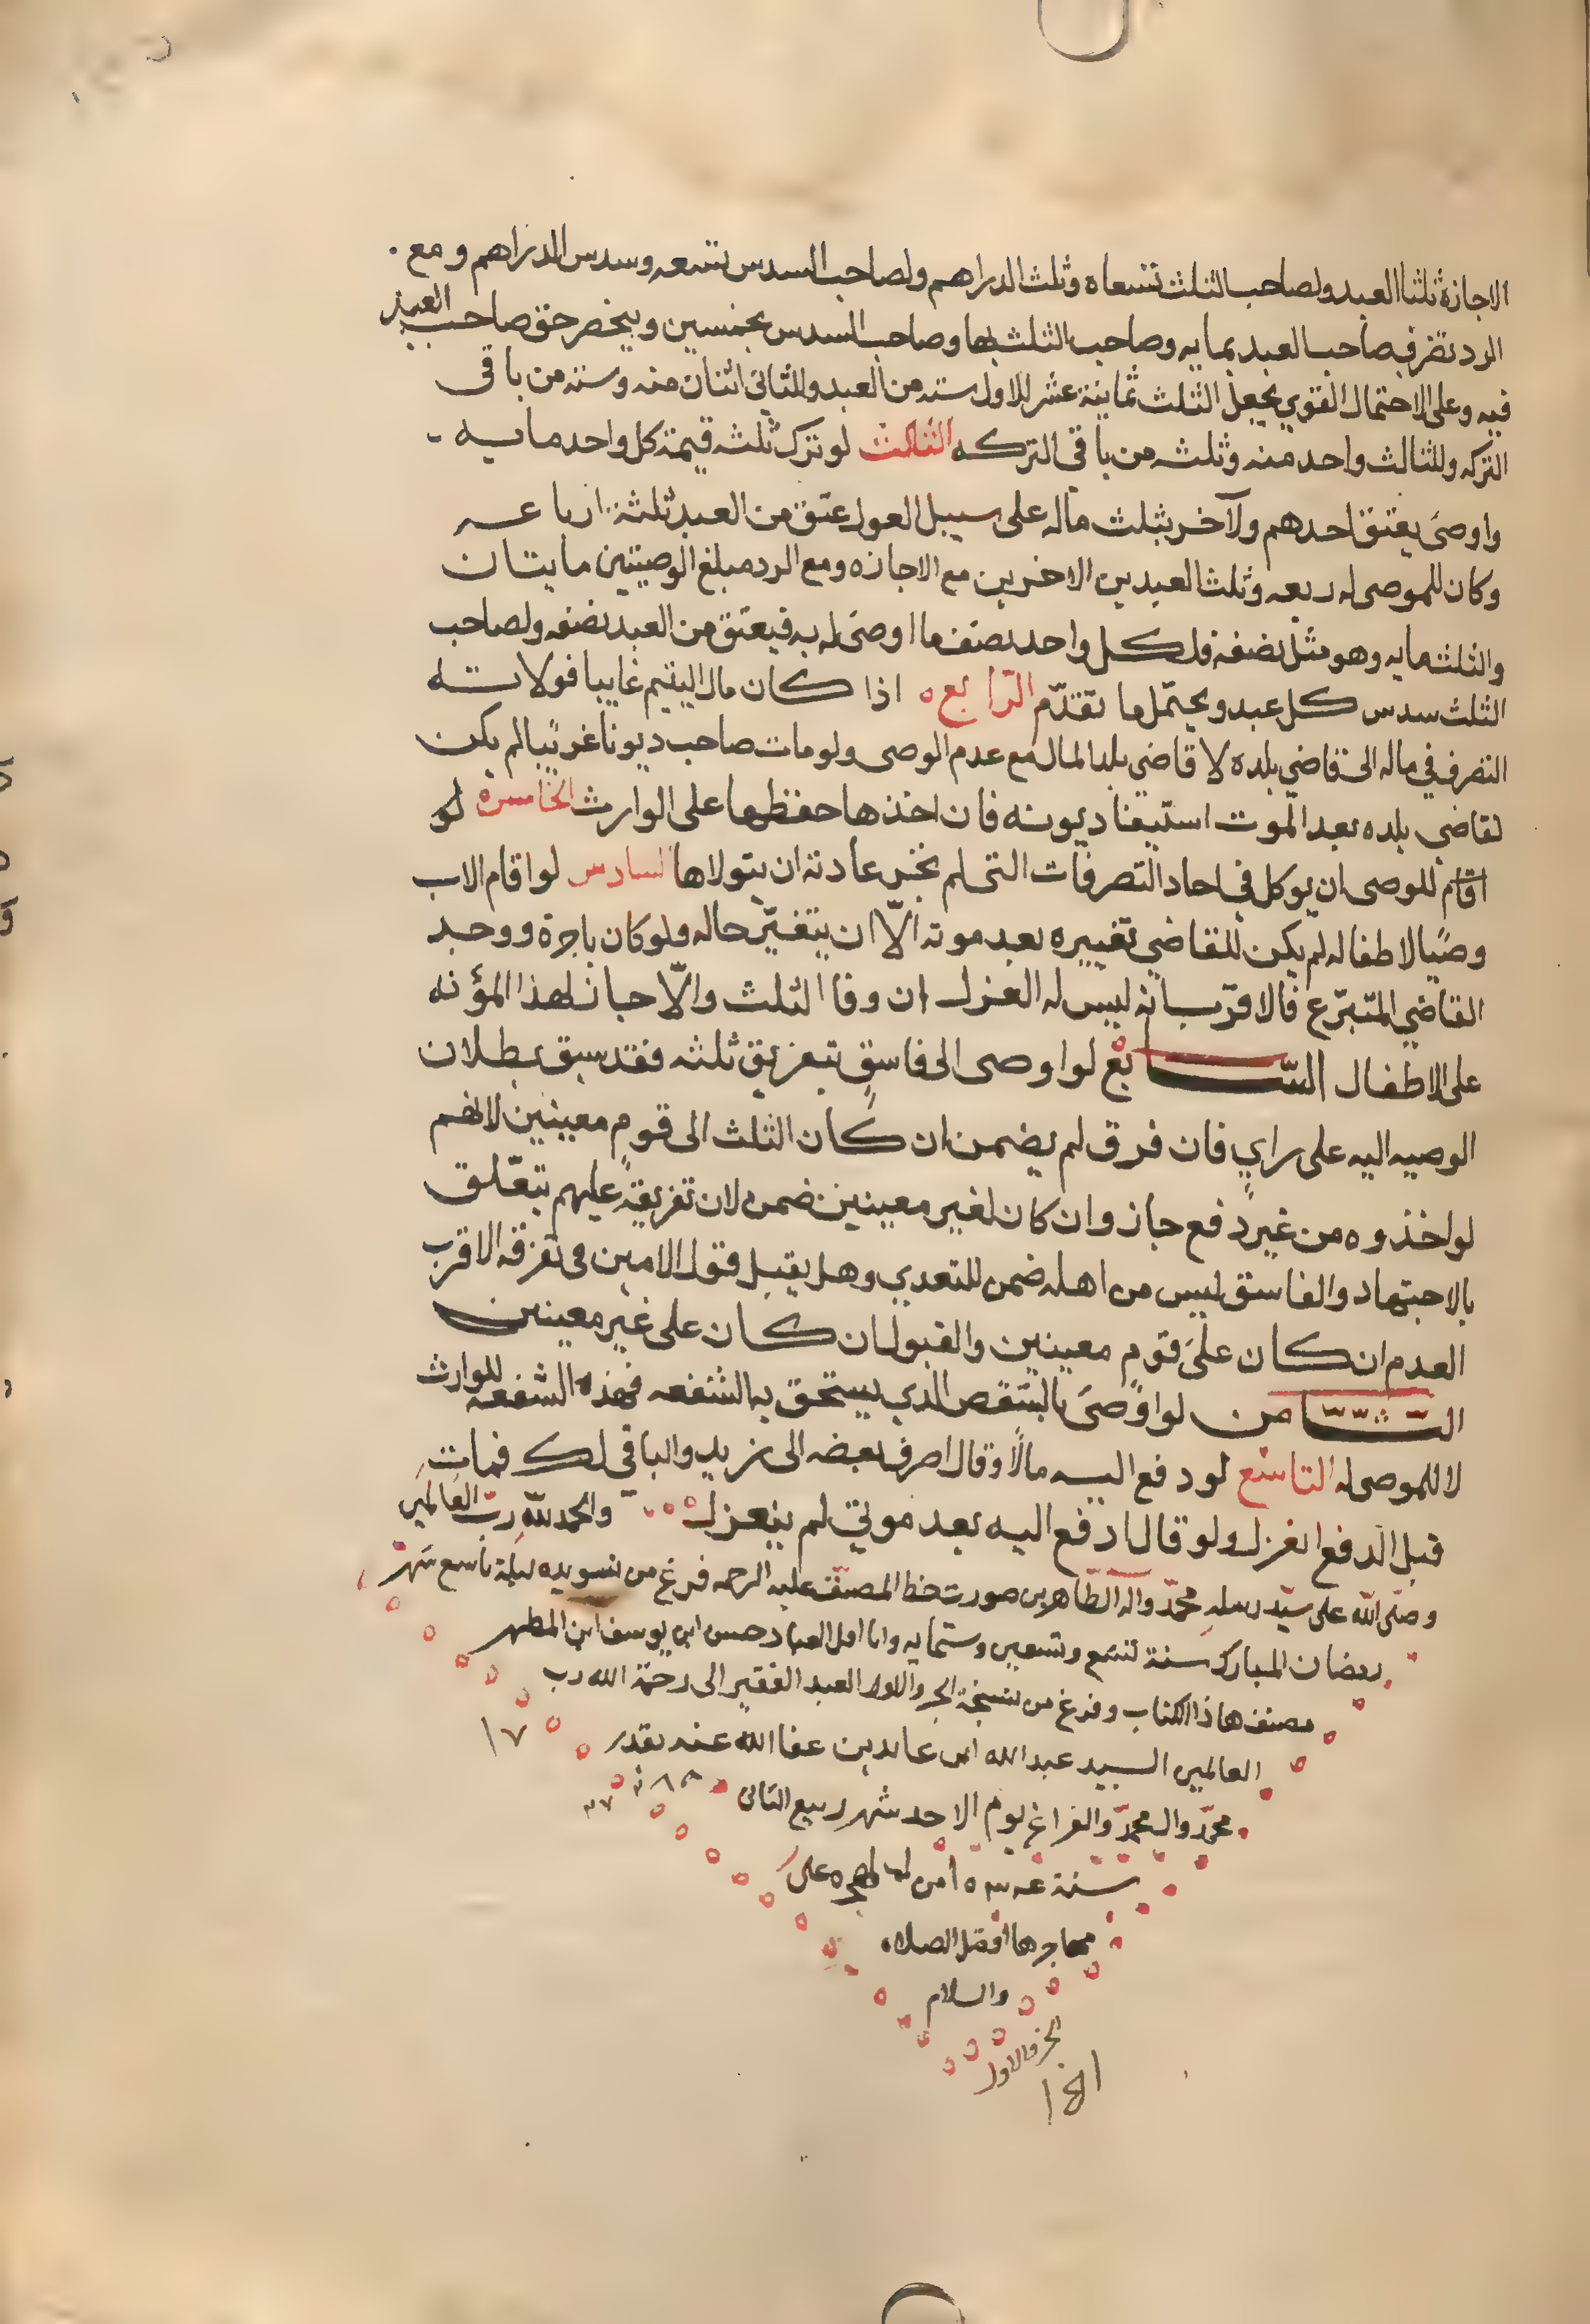 الاجازة ثلثا العبد ولصاحب الثلث تسعاه وثلث الدراهم ولصاحب السدس تسعه وسدس الدراهم ومع
الرد نضرب صاحب العبد بمايه وصاحب الثلث بها وصاحب السدس بخمسين وينحصر حق صاحب العبد
فيه وعلى الاحتمال القوي يجعل الثلث ثمانية عشر للاول سته من العبد وللثاني اثنان منه وسته من باقي
التركه وللثالث واحد منه وثلثه من باقي التركه الثالث لو ترك ثلثه قيمة كل واحد مايه
واوصى بعتق احدهم ولآخر بثلث ماله على سبيل العول عتق من العبد ثلثة ارباعه
وكان للموصى له ربعه وثلثا العبدين الاخرين مع الاجازه ومع الرد مبلغ الوصيتين مايتان
والثلث مايه وهو مثل نصفه فلكل واحد نصف ما اوصى له به فيعتق من العبد نصفه ولصاحب
الثلث سدس كل عبد ويحتمل ما تقدّم الرّابع اذا كان مال اليتيم غايبا فولاية
التصرف في ماله الى قاضي بلده لا قاضي بلد المال مع عدم الوصي ولو مات صاحب ديونا غريبا لم يكن
لقاضي بلده بعد الموت استيفا ديونه فان اخذها حفظها على الوارث الخامسة لو
اقام للوصى ان يوكل في احاد التصرفات التى لم تجر عادته ان يتولاها السادس لو اقام الاب
وصيّا لاطفاله لم يكن للقاضي تغييره بعد موته الّا ان يتغيّر حاله ولو كان باجرة ووجد
القاضي المتبرّع فالاقرب انه ليس له العزل ان وفا الثلث والّا جاز لهذا المؤنه
على الاطفال السّابع لو اوصى الى فاسق تبفريق ثلثه فقد سبق بطلان
الوصيه اليه على راي فان فرق لم يضمن ان كان الثلث الى قوم معينين لانهم
لو اخذوه من غير دفع جاز وان كان لغير معينين ضمن لان تفريقه عليهم يتعّلق
بالاجتهاد والفاسق ليس من اهله ضمن للتعدي وهل يقبل قول الامين في تفرقه الاقرب
العدم ان كان على قوم معينين والقبول ان كان على غير معينين
الثّامن لو اوصى بالشقص الذي يستحق به الشفعه فهذه الشفعه للوارث
لا للموصى له التاسع لو دفع اليه مالًا وقال اصرف بعضه الى زيد والباقي لك فمات
قبل الدفع انعزل ولو قال ادفع اليه بعد موتي لم ينعزل والحمد لله رب العالمين
وصلى الله على سيّد رسله محمّد واله الطّاهرين صورت خط المصنّف عليه الرحمه فرغ من تسويده ليلة تاسع شهر
رمضان المبارك سنة تسع وتسعين وستمايه وانا اقل العباد حسن ابن يوسف ابن المطهر
مصنف هاذا الكتاب وفرغ من نسخة الجزو الاول العبد الفقير الى رحمة الله رب
العالمين السيد عبدالله ابن عابدين عفا الله عنه بقدر ١٧
محمّد وال محمّد والفراغ يوم الاحد شهر ربيع الثانى
سنة من الهجره على
مهاجرها افضل الصلاه
والسلام
الجزو الاول